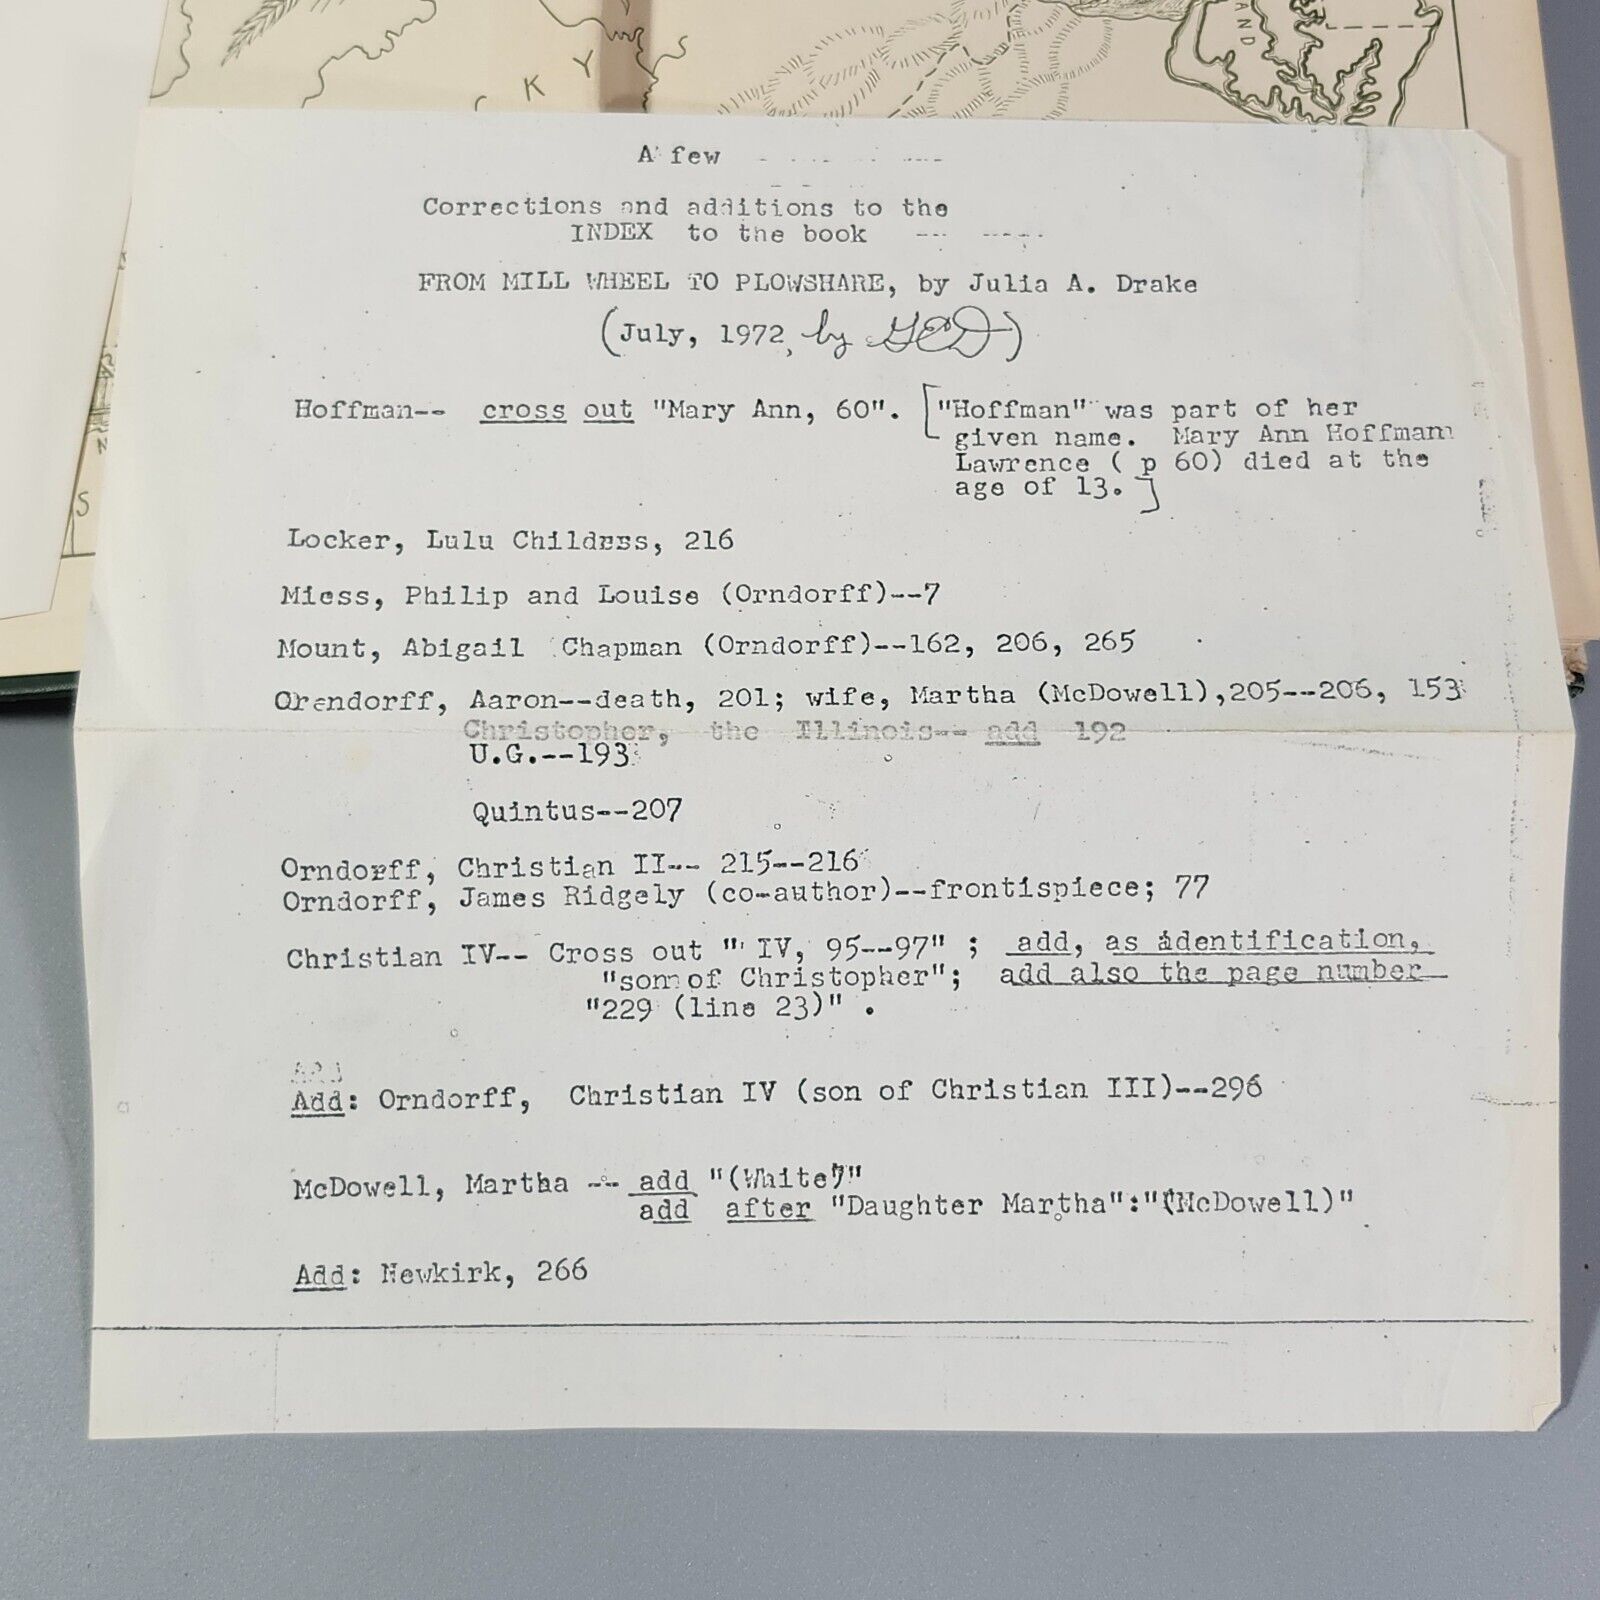 K Y
AND
S
A few
Corrections and additions to the
INDEX to the book
FROM MILL WHEEL TO PLOWSHARE, by Julia A. Drake
(July, 1972, by GCD)
Hoffman-- cross out "Mary Ann, 60". ["Hoffman" was part of her
given name. Mary Ann Hoffman
Lawrence ( p 60) died at the
age of 13.]
Locker, Lulu Childress, 216
Miess, Philip and Louise (Orndorff)--7
Mount, Abigail Chapman (Orndorff)--162, 206, 265
Orendorff, Aaron--death, 201; wife, Martha (McDowell),205--206, 153
Christopher, the Illinois-- add 192
U.G.--193
Quintus--207
Orndorff, Christian II-- 215--216
Orndorff, James Ridgely (co-author)--frontispiece; 77
Christian IV-- Cross out " IV, 95--97" ; add, as identification,
"son of Christopher"; add also the page number
"229 (line 23)" .
Add: Orndorff, Christian IV (son of Christian III)--296
McDowell, Martha -- add "(White)"
add after "Daughter Martha":"(McDowell)"
Add: Newkirk, 266